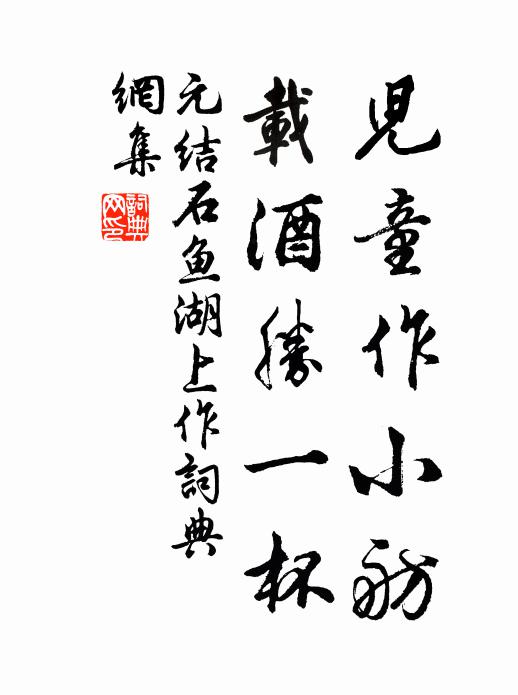 児童作小舫
載酒勝一杯
元结石鱼湖上作詞典
網集
詞典
网印